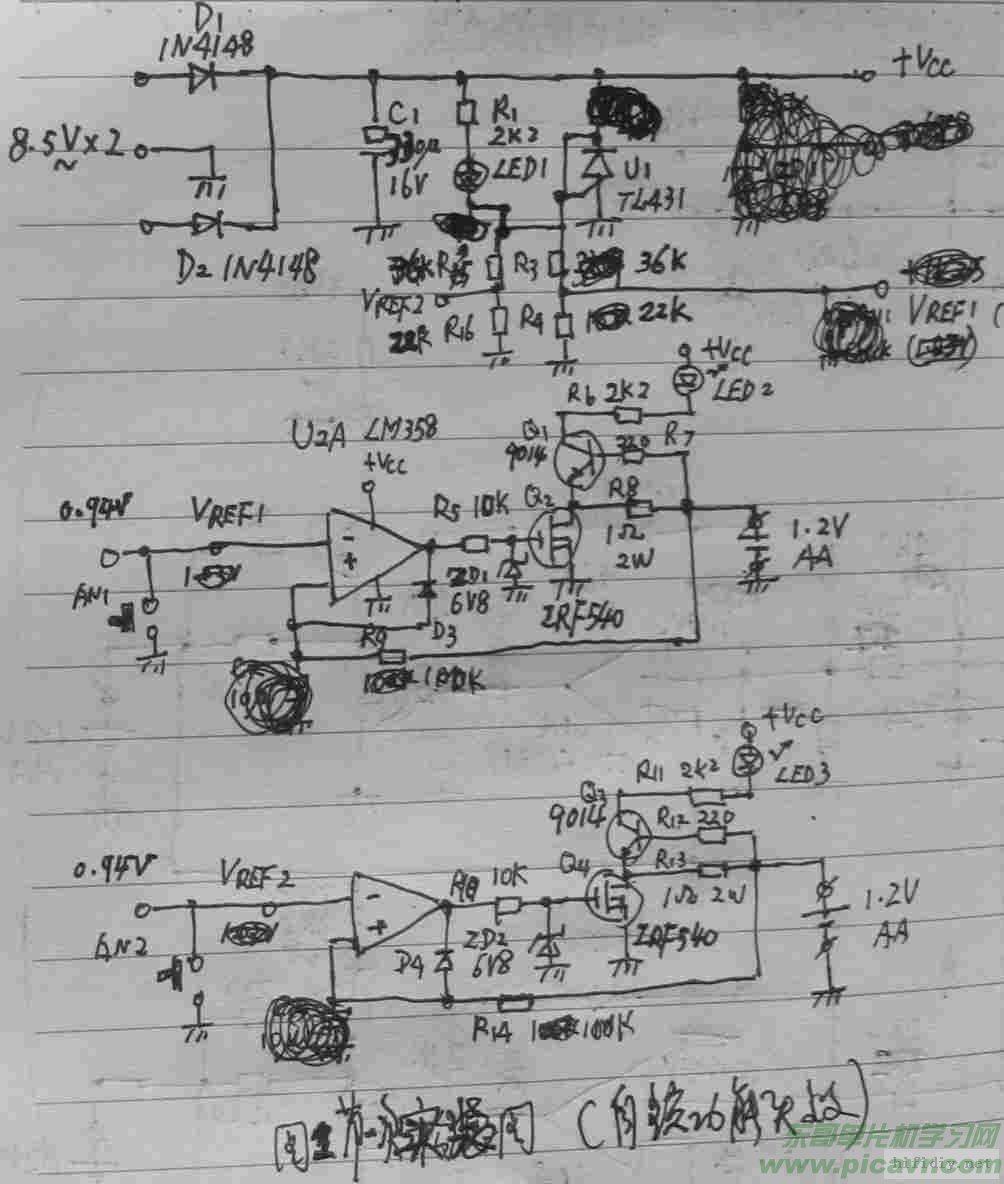 D1
1N4148
+Vcc
8.5V×2
~
C1
330μ
16V
R1
2K2
LED1
U1
TL431
D2 1N4148
36K R15
R3
36K
VREF2
22K R16
R4
22K
VREF1
+Vcc
LED2
R6 2K2
U2A LM358
+Vcc
Q1
9014
220
R7
0.94V
VREF1
R5 10K
Q2
R8
1Ω
2W
1.2V
AA
AN1
-
+
ZD1
6V8
IRF540
D3
R9
100K
+Vcc
R11 2K2
LED3
Q3
9014
R12 220
0.94V
VREF2
10K
Q4
R13
1Ω 2W
1.2V
AA
AN2
-
+
D4
ZD2
6V8
IRF540
R14
100K
东哥单片机学习网
www.picavr.com
hifidiy.net